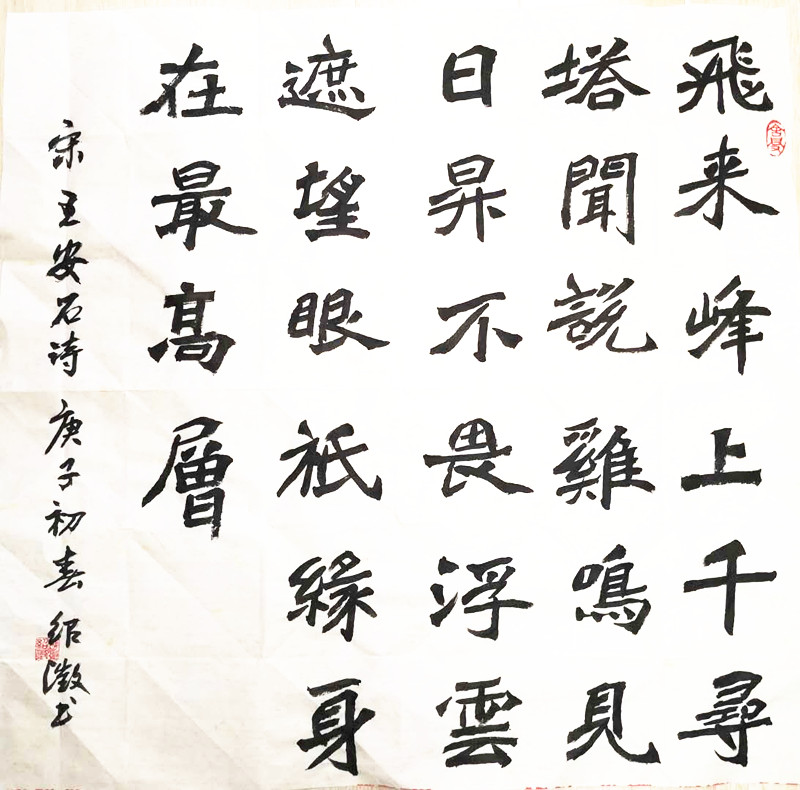 飛来峰上千尋
塔聞說雞鳴見
日昇不畏浮雲
遮望眼祇緣身
在最高層
宋王安石诗庚子初春绍澂书